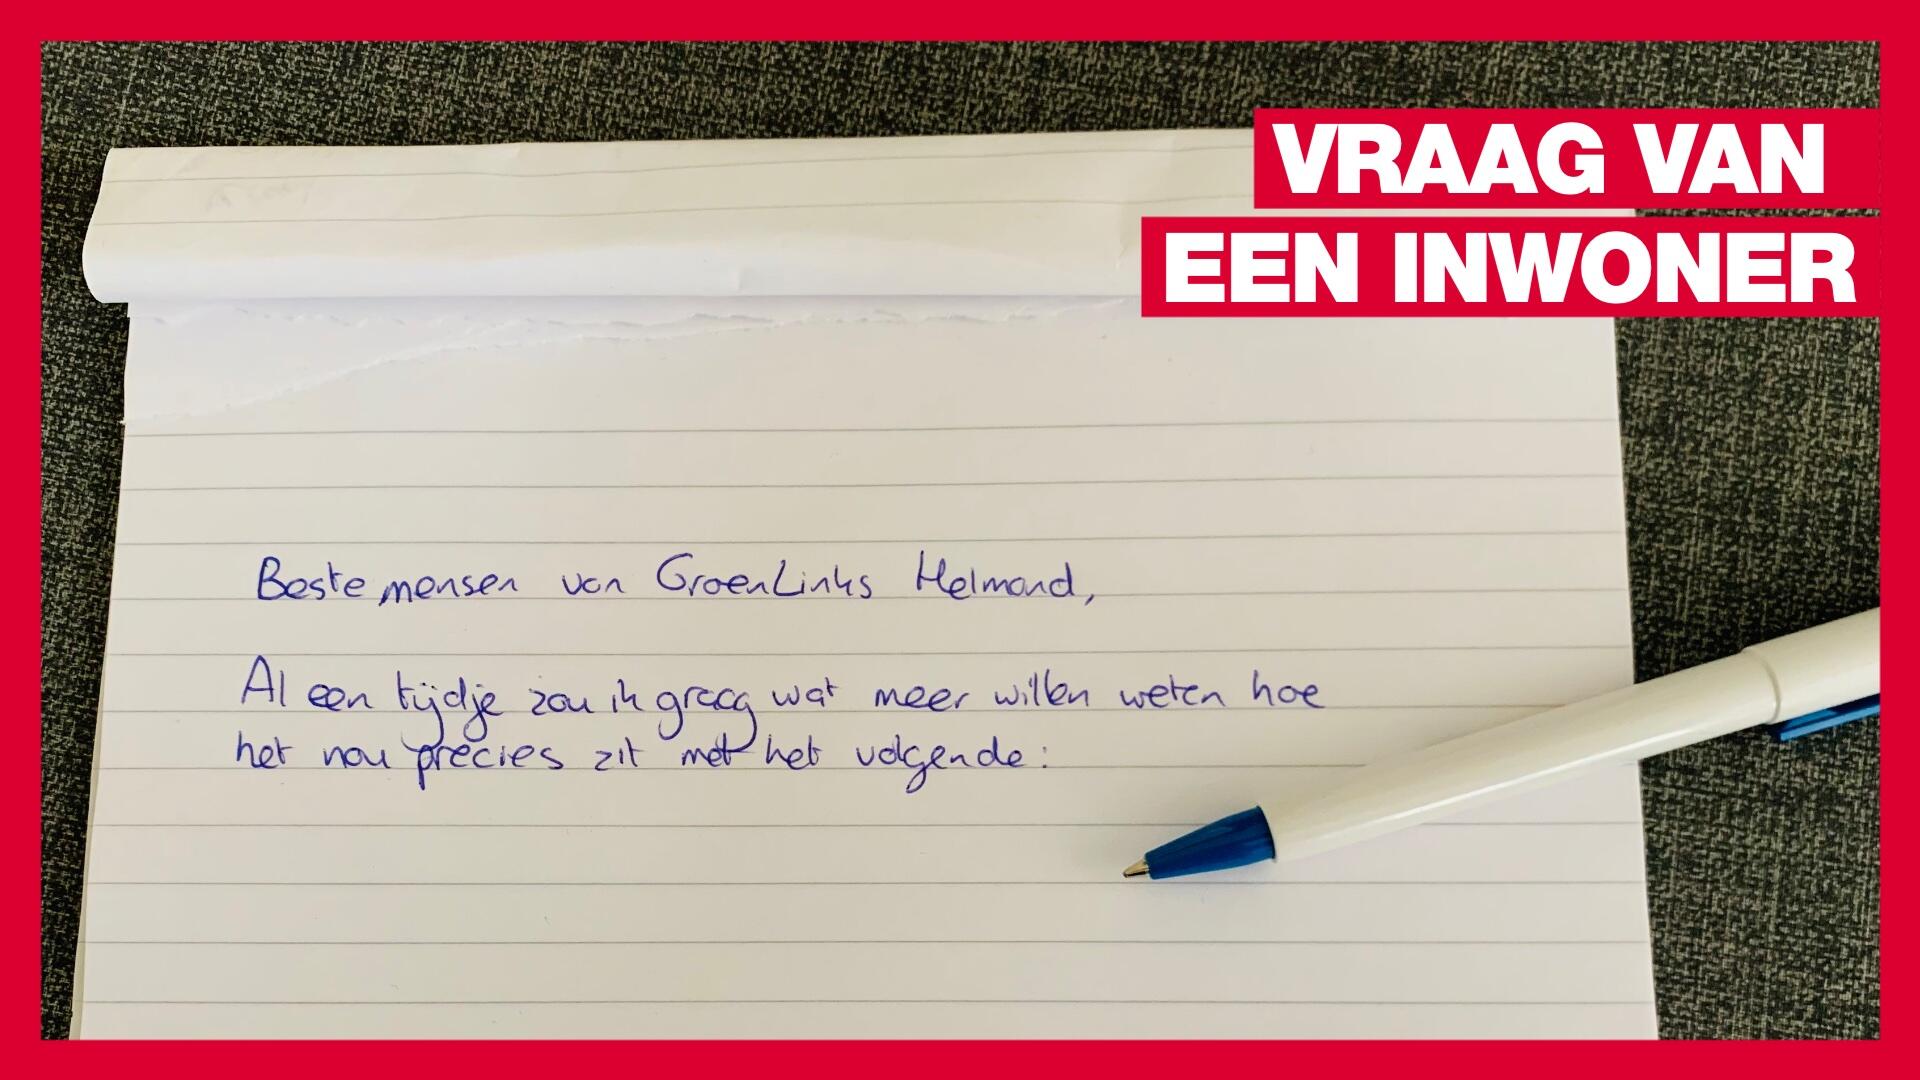 VRAAG VAN
EEN INWONER
Beste mensen van GroenLinks Helmond,
Al een tijdje zou ik graag wat meer willen weten hoe
het nou precies zit met het volgende: